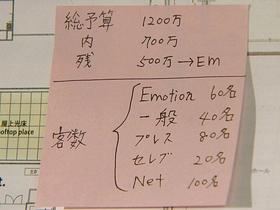 総予算 1200万
内 700万
残 500万→Em
客数
Emotion 60名
一般 40名
プレス 80名
セレブ 20名
Net 100名
屋上光床
oftop place
ホール